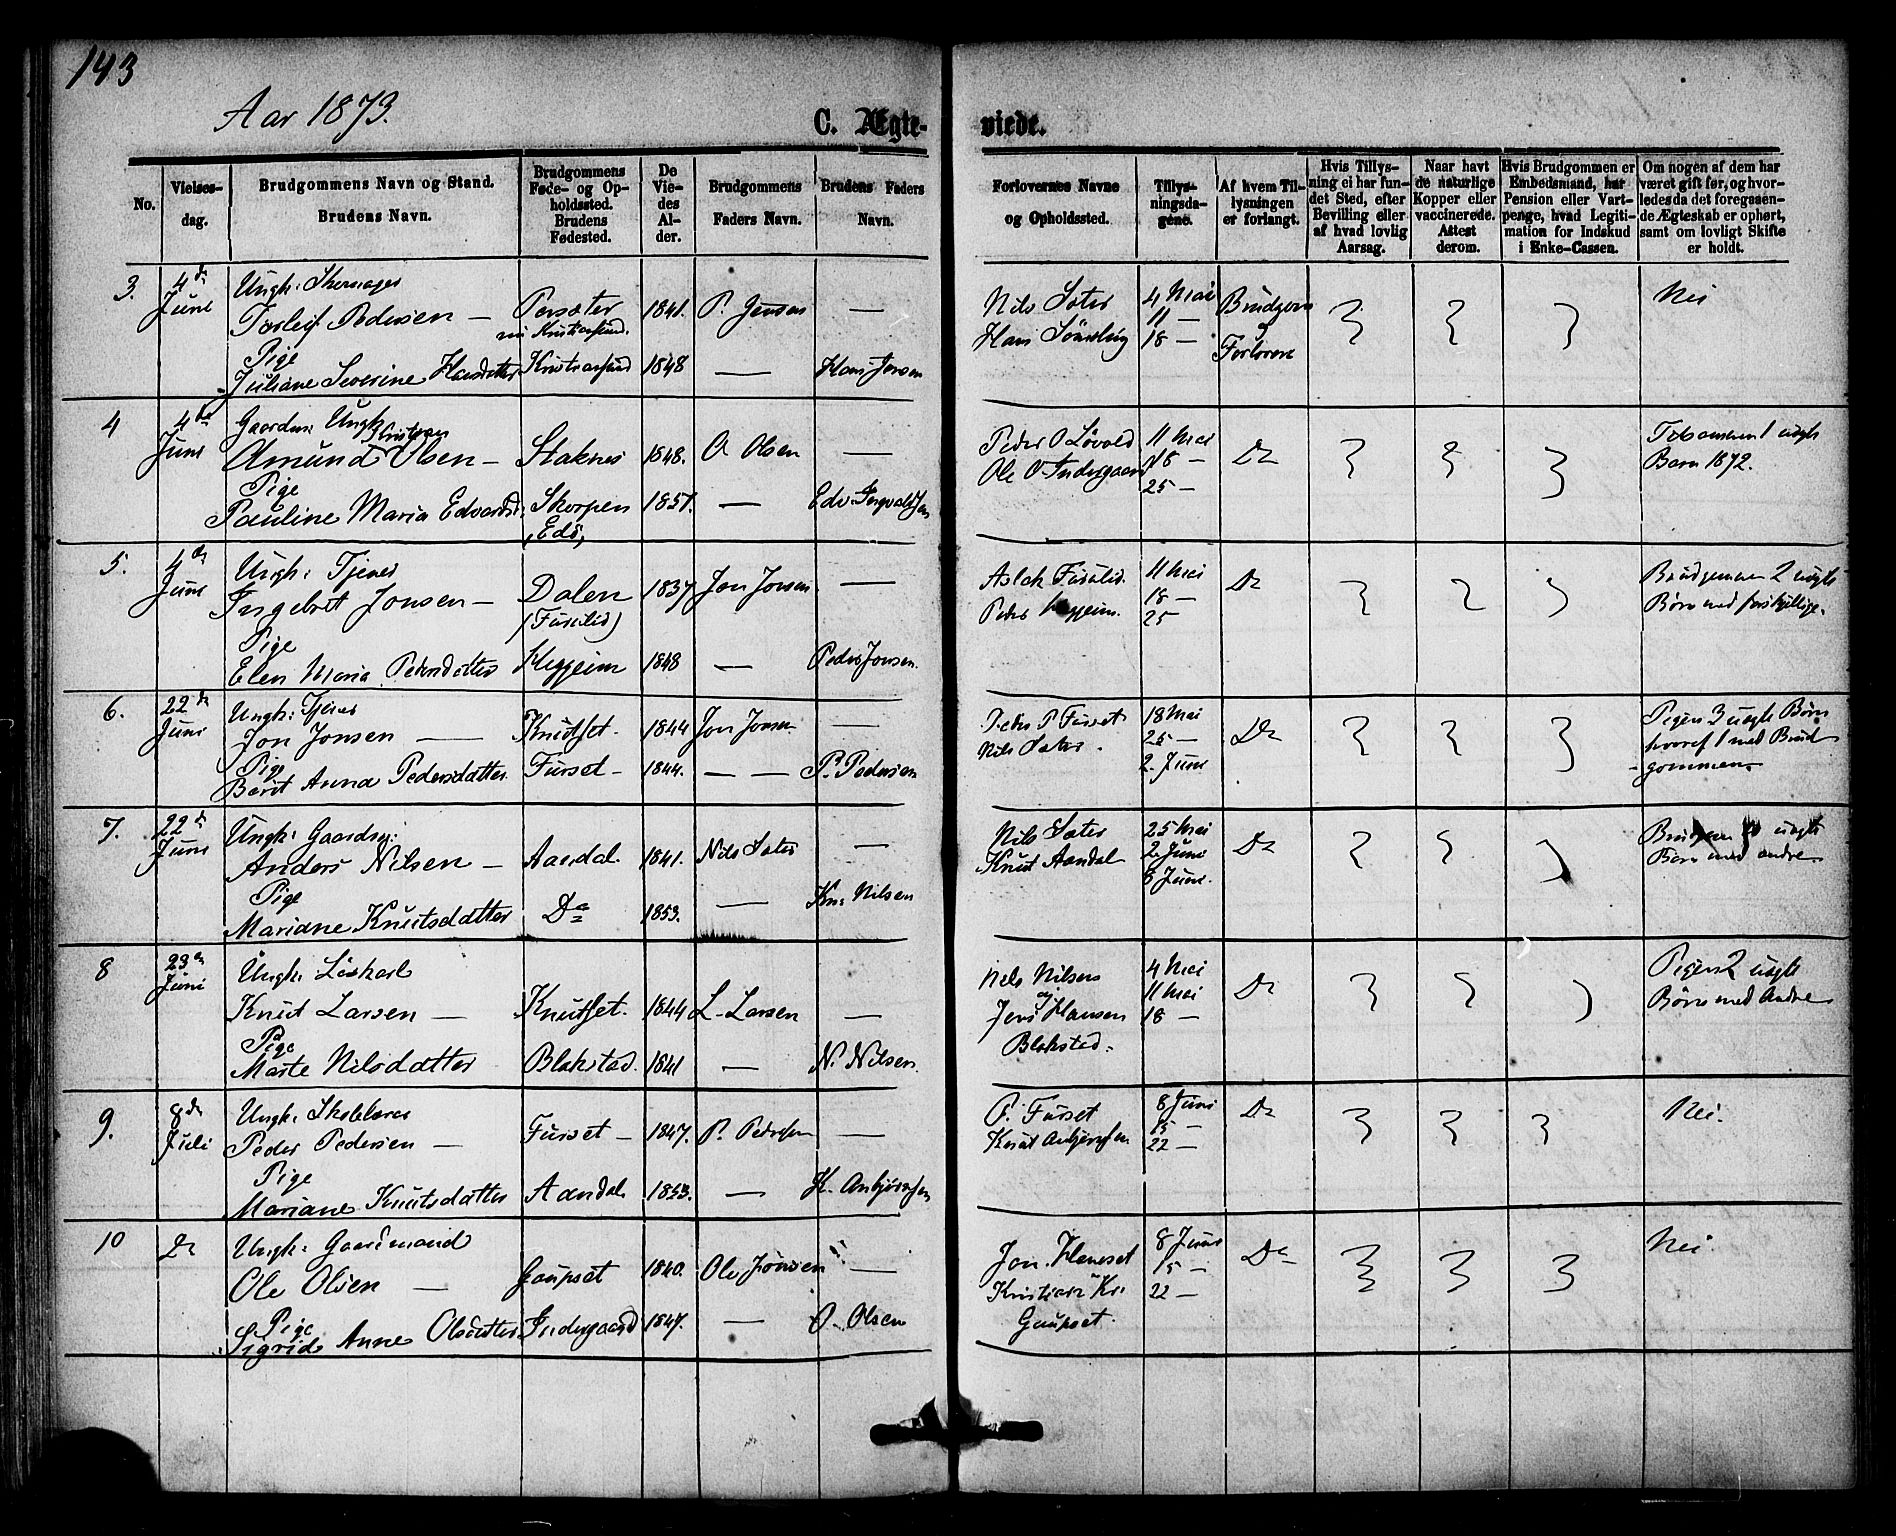 143
Aar 1873.
C. Ægte- viede.
No.
Vielses-
dag.
Brudgommens Navn og Stand.
Brudens Navn.
Brudgommens
Føde- og Op-
holdssted.
Brudens
Fødested.
De
Vie-
des
Al-
der.
Brudgommens
Faders Navn.
Brudens Faders
Navn.
Forlovernes Navne
og Opholdssted.
Tillys-
ningsda-
gene.
Af hvem Til-
lysningen
er forlangt.
Hvis Tillys-
ning ei har fun-
det Sted, efter
Bevilling eller
af hvad lovlig
Aarsag.
Naar havt
de naturlige
Kopper eller
vaccinerede.
Attest
derom.
Hvis Brudgommen er
Embedsmand, har
Pension eller Vart-
penge, hvad Legiti-
mation for Indskud
i Enke-Cassen.
Om nogen af dem har
været gift før, og hvor-
ledes da det foregaaen-
de Ægteskab er ophørt,
samt om lovligt Skifte
er holdt.
3. 4de Juni
Ungk: Skomager
Torleif Pedersen — 1841. P. Jensen —
Kristiansund.
Pige
Juliane Severine Hansdatter Kristiansund 1848 — Hans Jensen
Nils Sæter
Hans
4 Mai
11 —
18 —
Brudgom
Forlovere
Nei
4 4de Juni
Ungk
Amund Olsen — Staknes 1848. O Olsen —
Pige
Pauline Maria Edvardsd: Skorpen 1851. — Edv. Ingvaldsen
Edø,
Peder O Løvold
Ole O. Indergaard
11 Mai
18 —
25 —
Do
Tilsammen 1 uægte
Barn 1872.
5. 4de Juni
Ungk: Tjener
Ingebret Jonsen — Dalen 1837 Jon Jonsen —
(Furulid)
Pige
Elen Maria Pedersdatter Heggeim 1848 — Peder Jonsen.
Aslak Furulid
Peder Heggeim.
11 Mai
18 —
25
Do
Brudgommen 2 uægte
Børn med forskjellige.
6. 22de Juni
Ungk: Tjener
Jon Jonsen — Knutset. 1844 Jon Jonsen —
Pige
Berit Anna Pedersdatter Furset — 1844. — — P. Pedersen
Peder P Furset
Nils Sæter.
18 Mai
25 —
2. Juni
Do
Pigen 3 uægte Børn
hvoraf 1 med Brud
gommen
7. 22de Juni
Ungk: Gaardsg:
Anders Nilsen — Aandal 1841. Nils Sæter —
Pige
Mariane Knutsdatter Do 1853. — Kn: Nilsen
Nils Sæter
Knut Aandal
25 Mai
2. Juni
8 Juni.
Do
uægte
Børn med andre
8 23de Juni
Ungk: Løskarl
Knut Larsen — Knutset. 1844 L. Larsen —
Pige
Marte Nilsdatter Blakstad. 1841 — N. Nilsen
Nils Nilsen
og
Jens Hansen
Blakstad.
4 Mai
11 Mai
18 —
Do
Pigen 2 uægte
Børn med Andre
9. 8de Juli
Ungk: Skolelærer
Peder Pedersen — Furset — 1847. P. Pedersen —
Pige
Mariane Knutsdatter Aandal 1853. — K. Anbjørnsen
P. Furset
Knut Anbjørnsen
8 Juni
15 —
22 —
Do
Nei.
10 Do
Ungk: Gaardmand
Ole Olsen — Gaupset 1840. Ole Jonsen —
Pige
Sigrid Anne Olsdatter Indergaard 1847. — O. Olsen
Jon Heneset
Kristian Kr.
Gaupset.
8 Juni
15 —
22 —
Do
Nei.